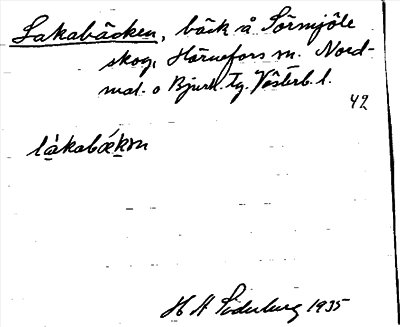 Lakabäcken, bäck å Sörmjöle
skog, Hörnefors sn. Nord-
mal. o Bjurh. tg. Västerb. l.
42
làkabǽkɐn
H A Söderberg 1935